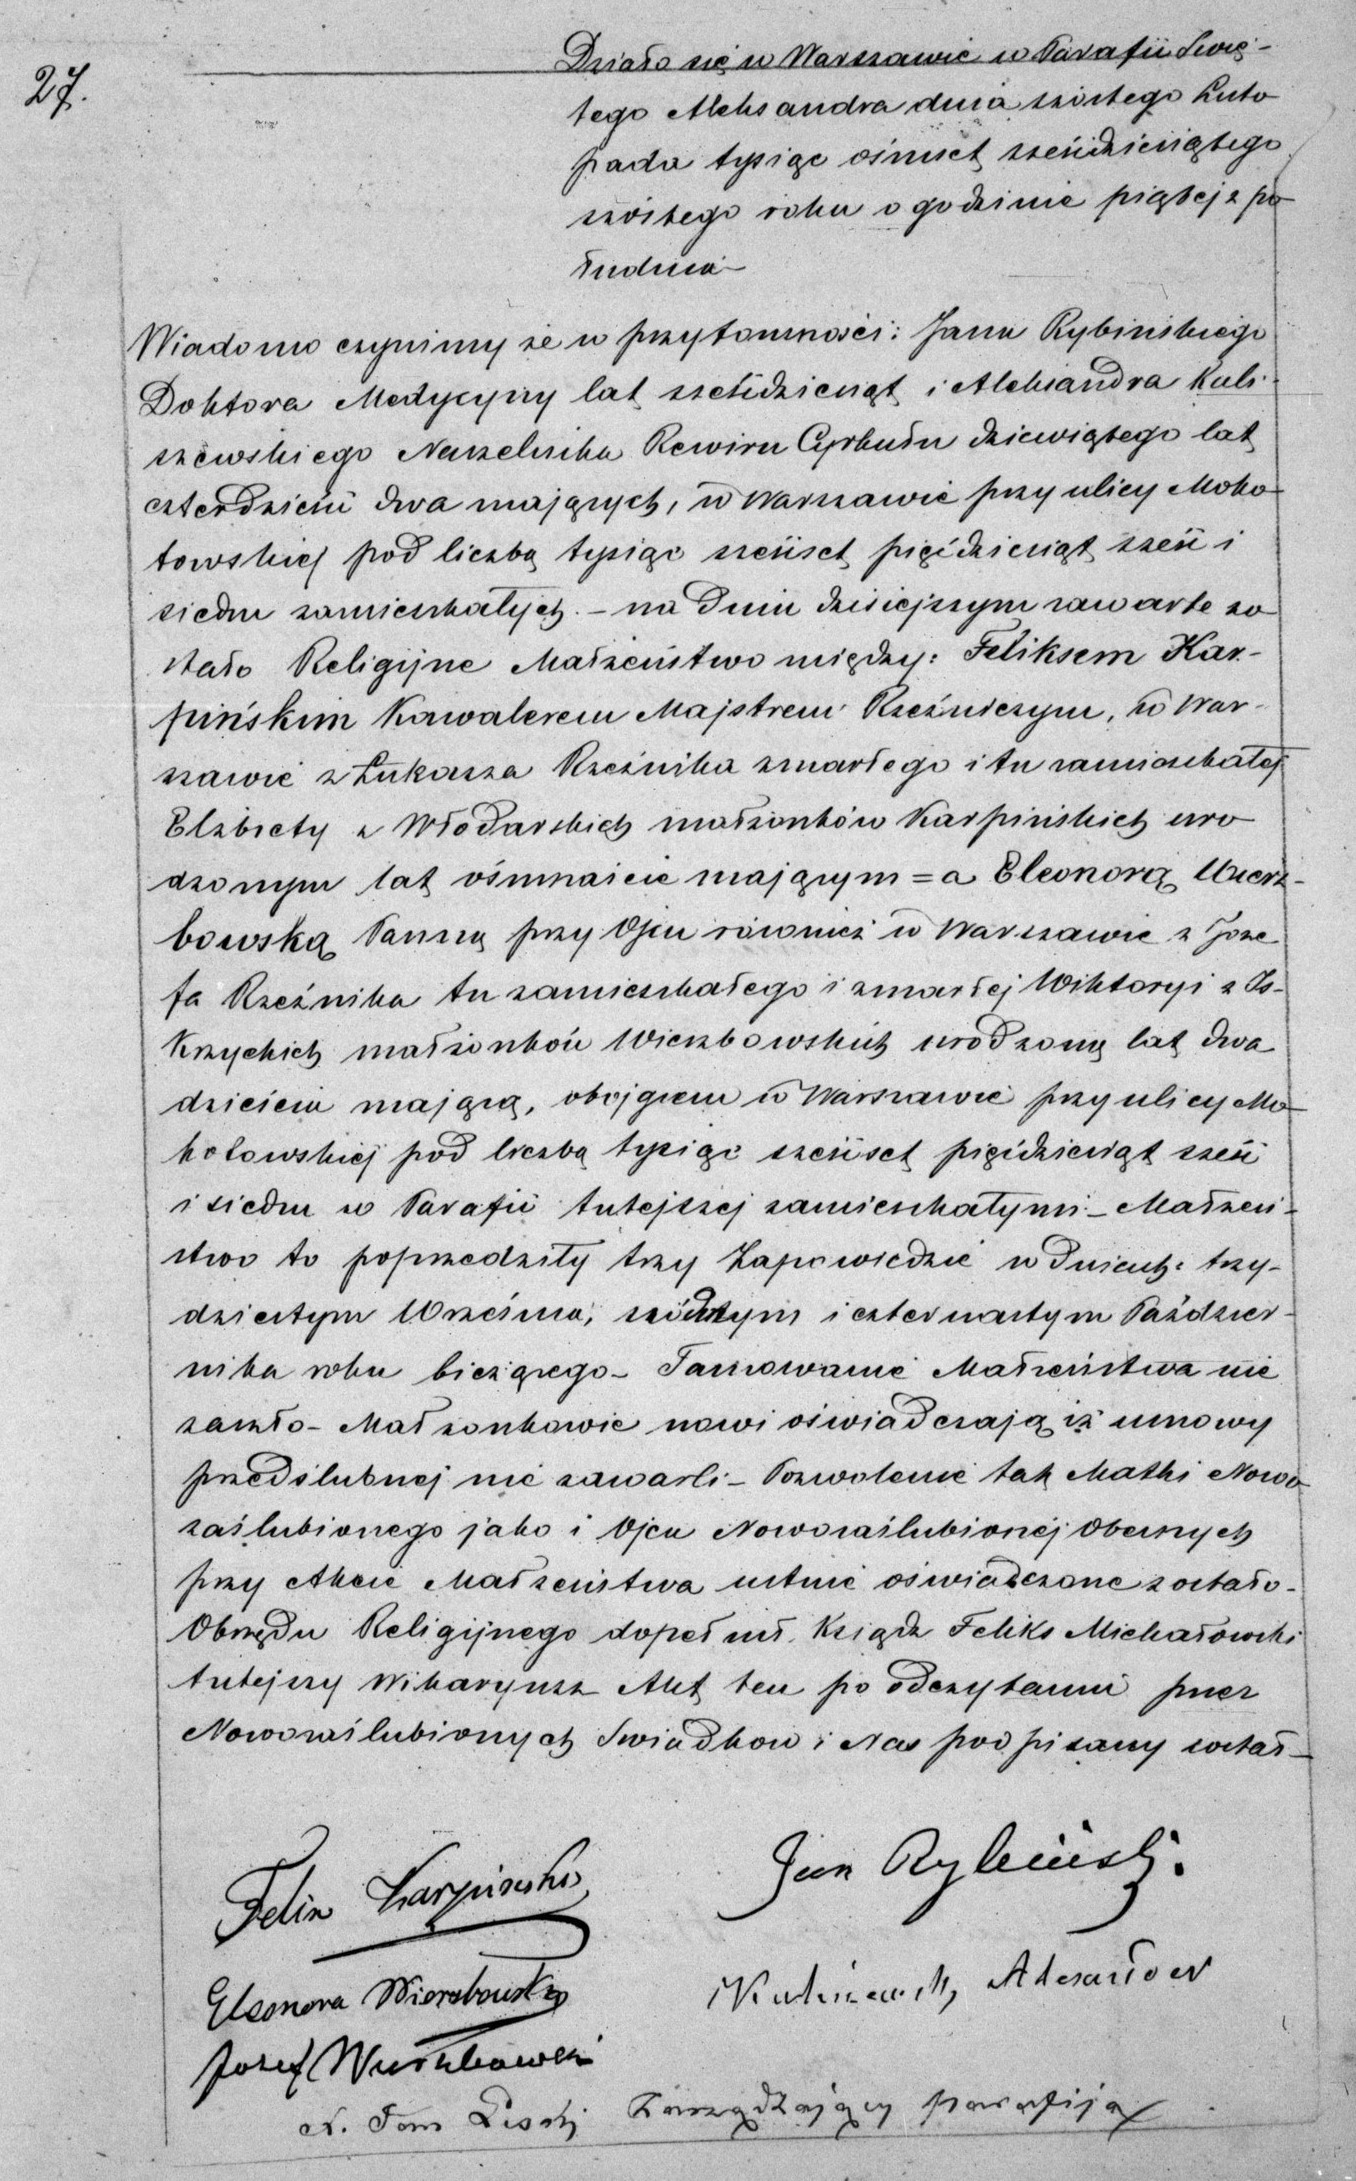 27.
Działo się w Warszawie w Parafii Swię-
tego Aleksandra dnia szóstego Listo
pada tysiąc ośmset sześćdziesiątego
szóstego roku o godzinie piątej z po
łudnia-
Wiadomo czynimy że w przytomności: Jana Rybińskiego
Doktora Medycyny lat sześćdziesiąt i Aleksandra Kuli-
szewskiego Naczelnika Rewiru Cyrkułu dziewiątego lat
czterdzieści dwa mających, w Warszawie przy ulicy Moko
towskiej pod liczbą tysiąc sześćset pięćdziesiąt sześć i
siedm zamieszkałych. - na dniu dzisiejszym zawarte zo
stało Religijne Małżeństwo między: Feliksem Kar-
pińskim Kawalerem Majstrem Rzeźniczym, w War-
szawie z Łukasza Rzeźnika zmarłego i tu zamieszkałej
Elżbiety z Włodarskich małżonków Karpińskich uro
dzonym lat ośmnaście mającym = a Eleonorą Wierz-
bowską Panną przy Ojcu również w Warszawie z Joze
fa Rzeźnika tu zamieszkałego i zmarłej Wiktoryi z Is-
Krzyckich małżonków Wierzbowskich urodzoną lat dwa
dzieścia mającą, obojgiem w Warszawie przy ulicy Mo-
kotowskiej pod liczbą tysiąc sześćset pięćdziesiąt sześć
i siedm w Parafii tutejszej zamieszkałymi - Małżeń-
stwo to poprzedziły trzy Zapowiedzie w dniach: trzy-
dziestym Września, siódmym i czternastym Paździer-
nika roku bieżącego - Tamowanie Małżeństwa nie
zaszło - Małżonkowie nowi oświadczają iż umowy
przedślubnej nie zawarli - Pozwolenie tak Matki Nowo
zaślubionego jako i Ojca Nowozaślubionej Obecnych
przy Akcie Małżeństwa ustnie oświadczone zostało-
Obrzędu Religijnego dopełnił Ksiądz Feliks Michałowski
tutejszy Wikaryusz Akt ten po odczytaniu przez
Nowozaślubionych Swiadkow i Nas podpisany został-
Felix Karpiński Jan Rybiński.
Eleonora Wierzbowska Kuliszewski Alexander
Jozef Wierzbowski
Zarządzający parafiją